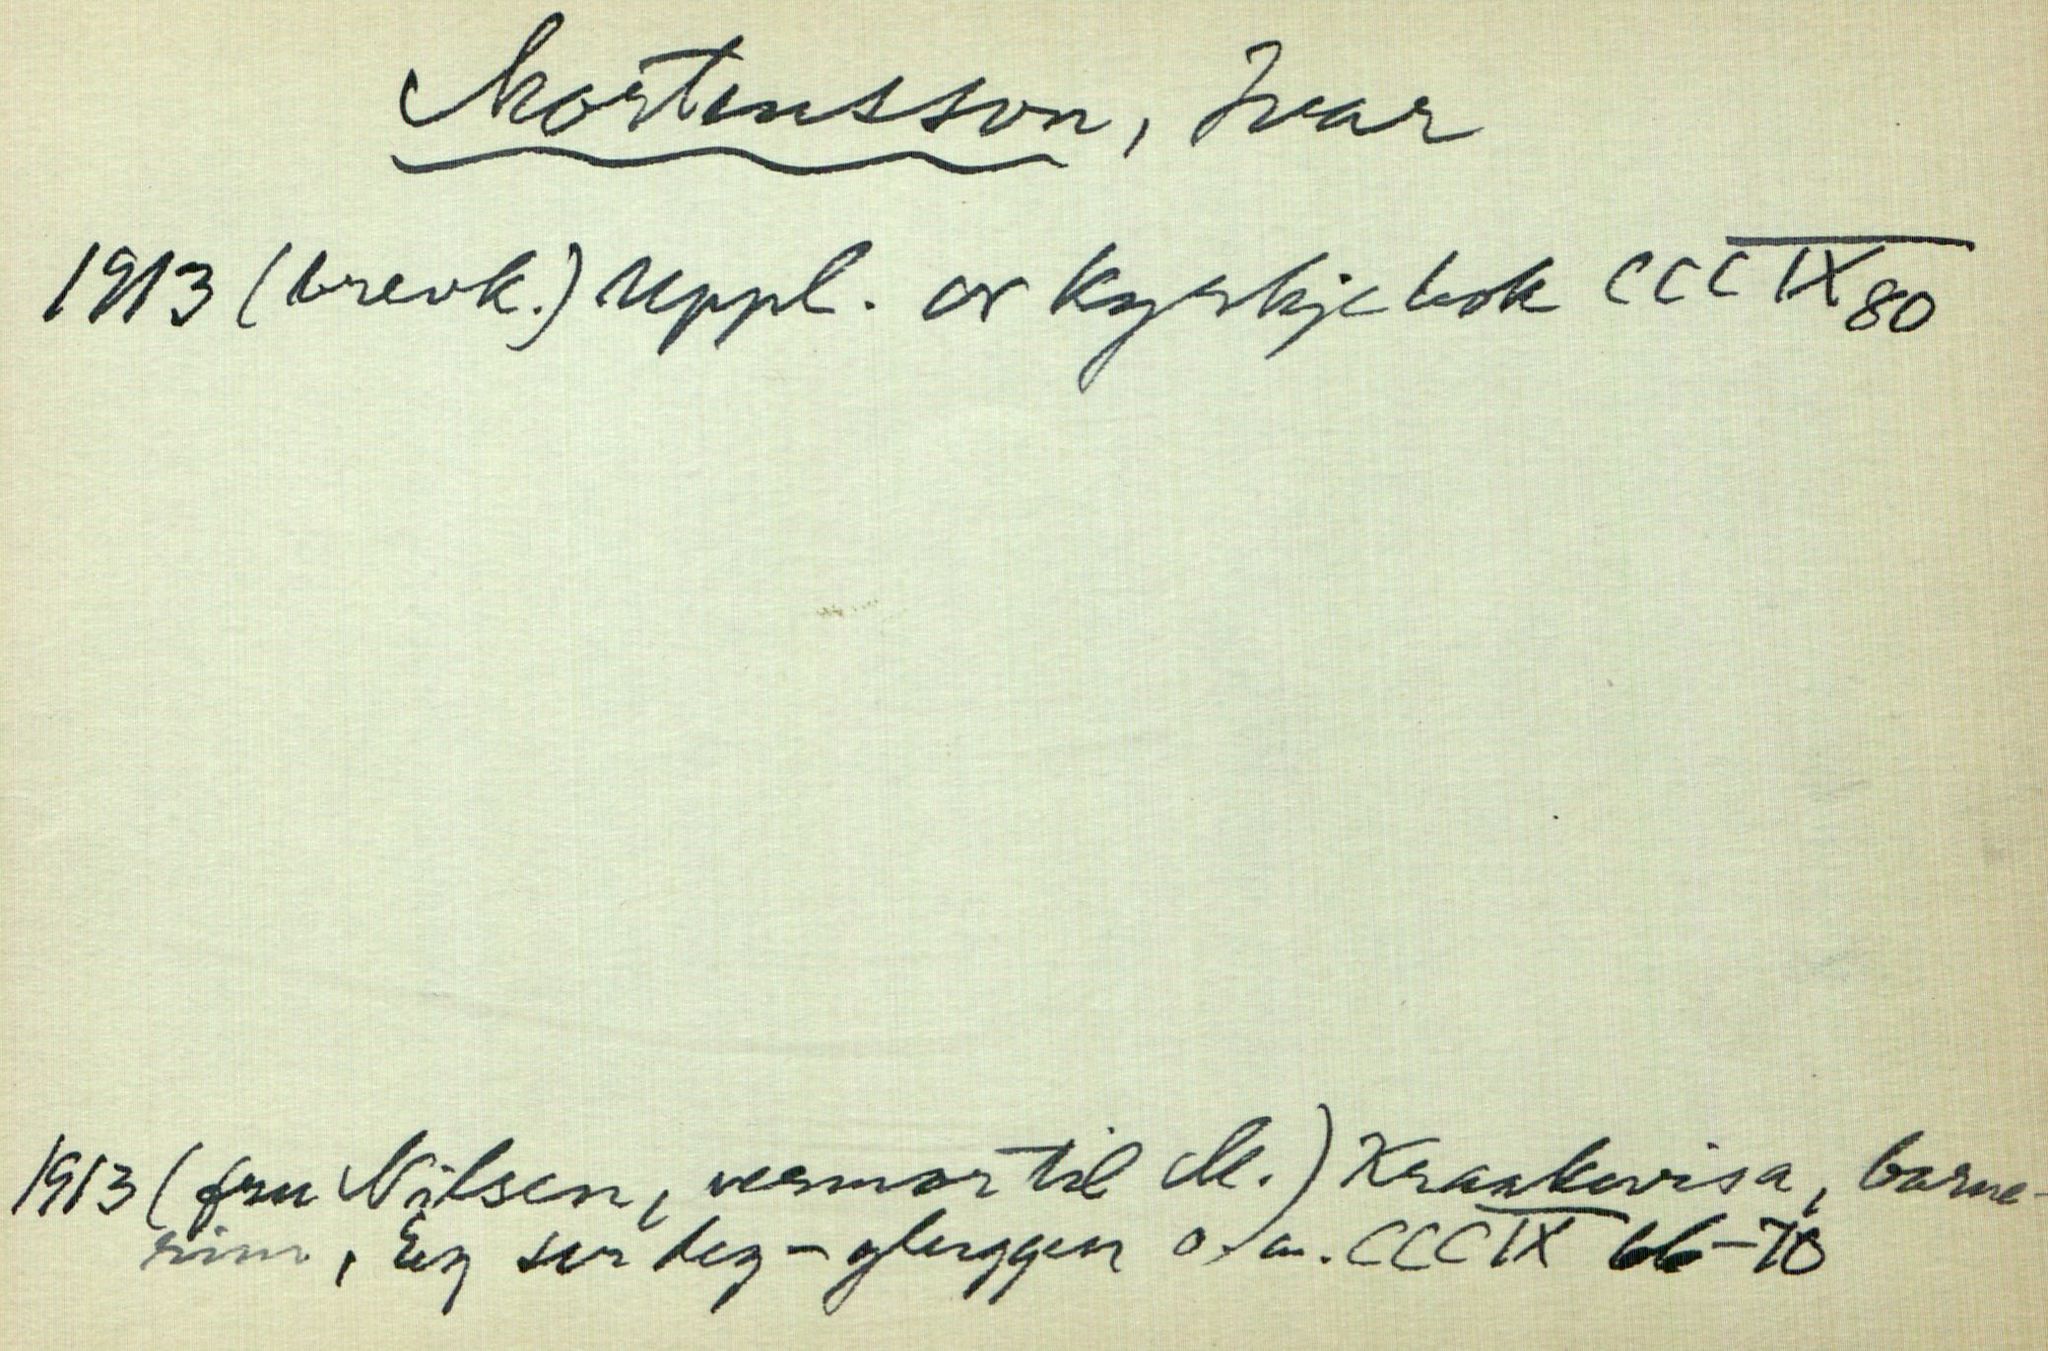 Mortensson, Ivar
1913 (brevk.) Uppl. or kyrkjebok CCCIX 80
1913 (fru Nilsen, vermor til M.) Kraakevisa, barne-
rim, Eg ser deg - gluggen o.a. CCCIX 66-70